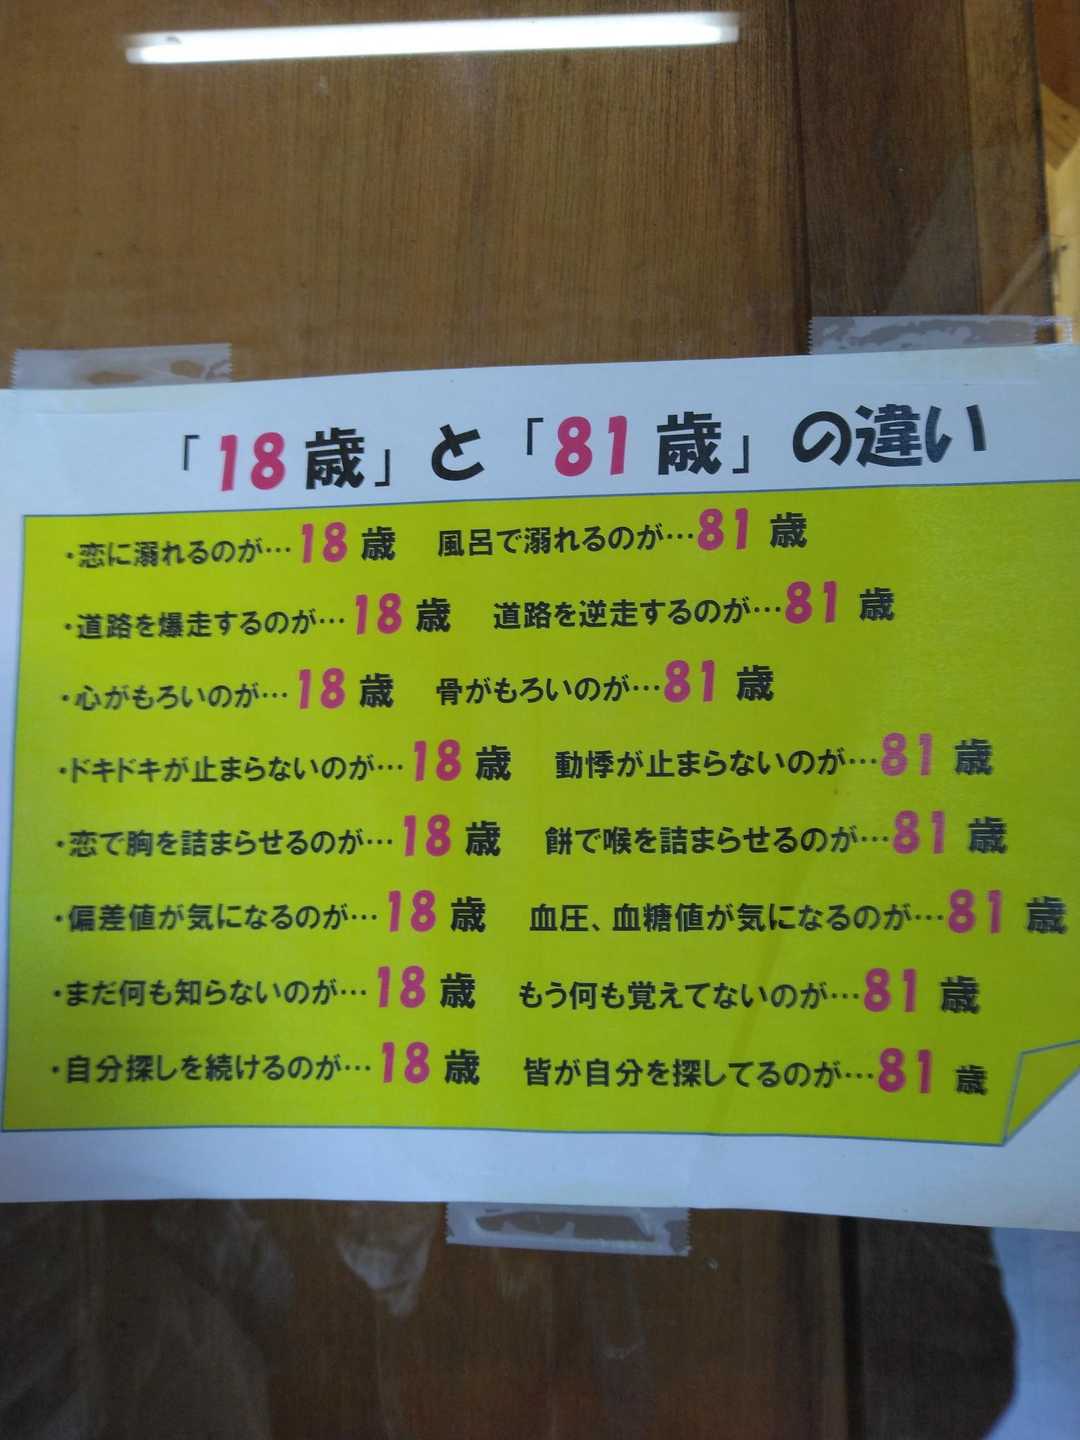 「18歳」と「81歳」の違い
・恋に溺れるのが…18歳 風呂で溺れるのが…81歳
・道路を爆走するのが…18歳 道路を逆走するのが…81歳
・心がもろいのが…18歳 骨がもろいのが…81歳
・ドキドキが止まらないのが…18歳 動悸が止まらないのが…81歳
・恋で胸を詰まらせるのが…18歳 餅で喉を詰まらせるのが…81歳
・偏差値が気になるのが…18歳 血圧、血糖値が気になるのが…81歳
・まだ何も知らないのが…18歳 もう何も覚えてないのが…81歳
・自分探しを続けるのが…18歳 皆が自分を探してるのが…81歳